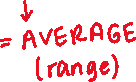 = AVERAGE
(range)